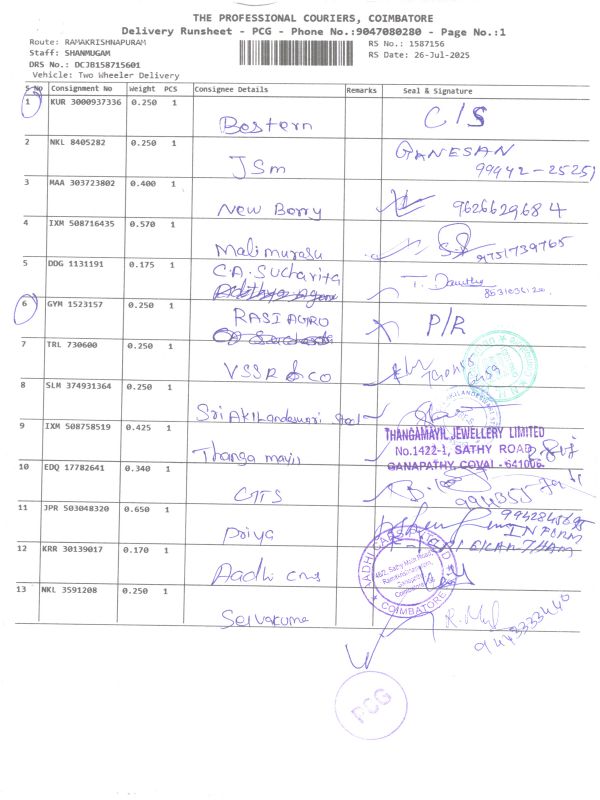 THE PROFESSIONAL COURIERS, COIMBATORE
Delivery Runsheet - PCG - Phone No.:9047080280 - Page No.:1
Route: RAMAKRISHNAPURAM
RS No.: 1587156
Staff: SHANMUGAM
RS Date: 26-Jul-2025
DRS No.: DCJB158715601
Vehicle: Two Wheeler Delivery
S No Consignment No Weight PCS Consignee Details Remarks Seal & Signature
1 KUR 3000937336 0.250 1
Bestern C/S
2 NKL 8405282 0.250 1
JSm GANESAN
99942-25251
3 MAA 303723802 0.400 1
New Borry 9626629684
4 IXM 508716435 0.570 1
Malimurasu 9751739765
5 DDG 1131191 0.175 1
C.A. Sucharita
6 GYM 1523157 0.250 1
RASI AGRO P/R
7 TRL 730600 0.250 1
VSSR & CO
8 SLM 374931364 0.250 1
Sri Akilandeswari Steel
9 IXM 508758519 0.425 1
THANGAMAYIL JEWELLERY LIMITED
No.1422-1, SATHY ROAD
GANAPATHY, COVAI - 641006.
Thanga mayil
10 EDQ 17782641 0.340 1
CTTS
11 JPR 503048320 0.650 1
Priya
12 KRR 30139017 0.170 1
Aadhi cars
13 NKL 3591208 0.250 1
COIMBATORE
Selvakumar 9443333440
PCG